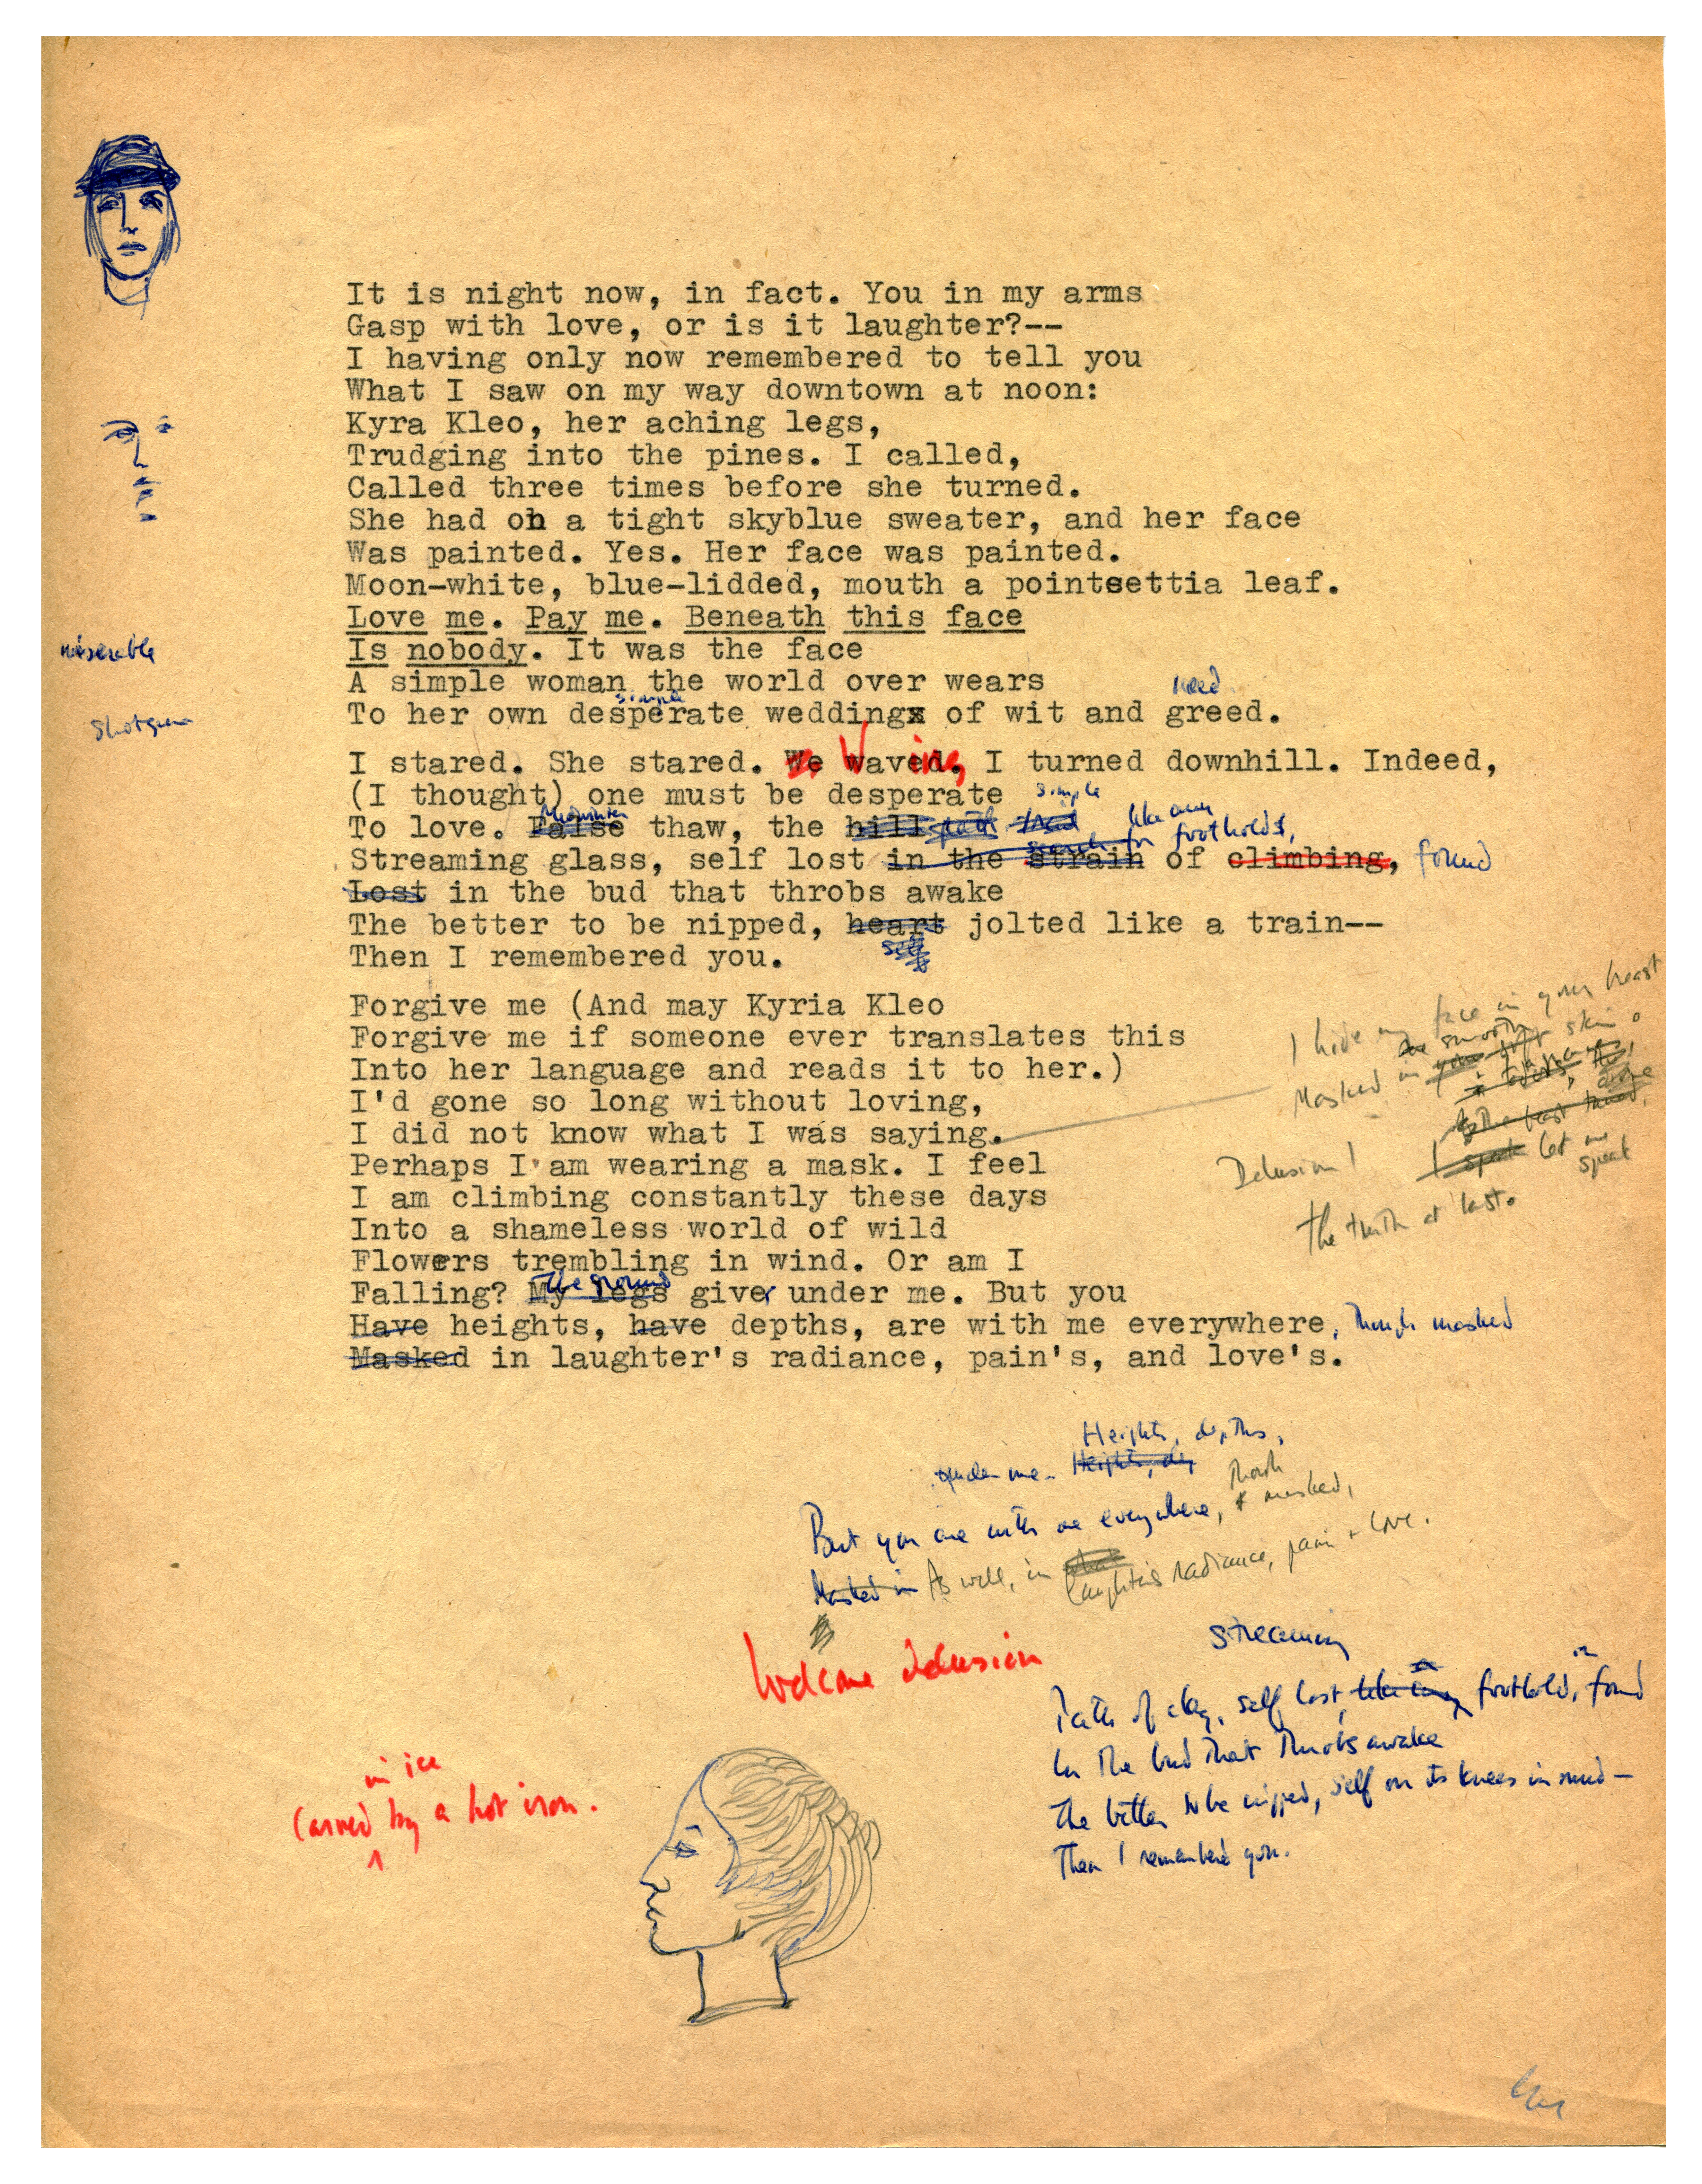 It is night now, in fact. You in my arms
Gasp with love, or is it laughter?--
I having only now remembered to tell you
What I saw on my way downtown at noon:
Kyra Kleo, her aching legs,
Trudging into the pines. I called,
Called three times before she turned.
She had on a tight skyblue sweater, and her face
Was painted. Yes. Her face was painted.
Moon-white, blue-lidded, mouth a pointsettia leaf.
Love me. Pay me. Beneath this face
miserable
Is nobody. It was the face
A simple woman the world over wears
simple need
To her own desperate weddingx of wit and greed.
Shotgun
I stared. She stared. We waved. I turned downhill. Indeed,
W ing,
(I thought) one must be desperate simple
Midwinter
To love. False thaw, the hill path like any
search for footholds,
Streaming glass, self lost in the strain of climbing, found
Lost in the bud that throbs awake
The better to be nipped, heart jolted like a train--
self
Then I remembered you.
Forgive me (And may Kyria Kleo
Forgive me if someone ever translates this
Into her language and reads it to her.)
I'd gone so long without loving,
I did not know what I was saying.
I hide my face in your heart
the smooth
Masked in your skin.
Delusion! I speak let me speak
the truth at last.
Perhaps I am wearing a mask. I feel
I am climbing constantly these days
Into a shameless world of wild
Flowers trembling in wind. Or am I
the ground
Falling? My legs give under me. But you
Have heights, have depths, are with me everywhere, though masked
Masked in laughter's radiance, pain's, and love's.
Heights, depths,
under me. Heights, de
Though
But you are with me everywhere, & masked,
Masked in As well, in laughter's radiance, pain + love.
Welcome delusion
streaming
Path of clay, self lost, like any foothold, in found
In the bud that throbs awake
The better to be nipped, self on its knees in mud—
Then I remembered you.
in ice
Carved by a hot iron.